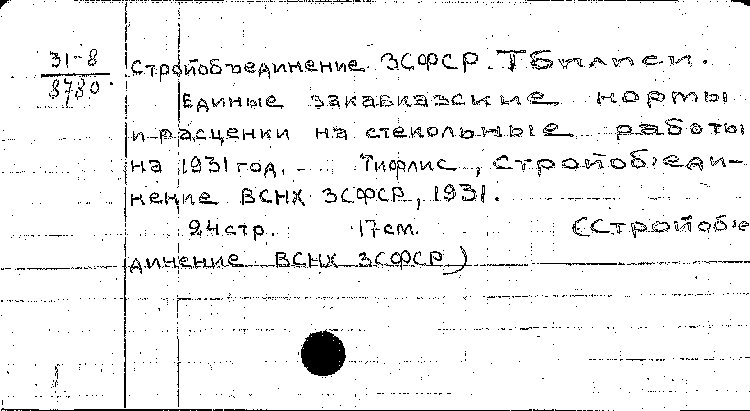 31-8
8780.
Стройобъединение ЗСФСР. Тбилиси.
Единые закавказские нормы
и расценки на стекольные работы
на 1931 год. - Тифлис, Стройобъеди-
нение ВСНХ ЗСФСР, 1931.
24 стр. 17 см. (Стройобъе
динение ВСНХ ЗСФСР)